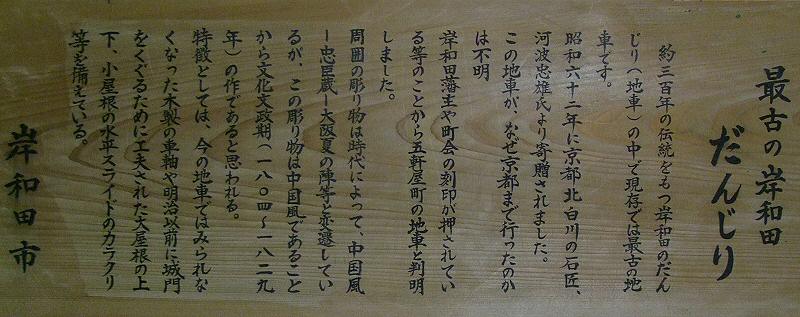 最古の岸和田
だんじり
約三百年の伝統をもつ岸和田のだん
じり（地車）の中で現存では最古の地
車です。
昭和六十二年に京都北白川の石匠、
河波忠雄氏より寄贈されました。
この地車が、なぜ京都まで行ったのか
は不明
岸和田藩主や町会の刻印が押されてい
る等のことから五軒屋町の地車と判明
しました。
周囲の彫り物は時代によって、中国風
ー忠臣蔵ー大阪夏の陣等と変遷してい
るが、この彫り物は中国風であること
から文化文政期（一八〇四〜一八二九
年）の作であると思われる。
特徴としては、今の地車ではみられな
くなった木製の車軸や明治以前に城門
をくぐるために工夫された大屋根の上
下、小屋根の水平スライドのカラクリ
等を備えている。
岸和田市